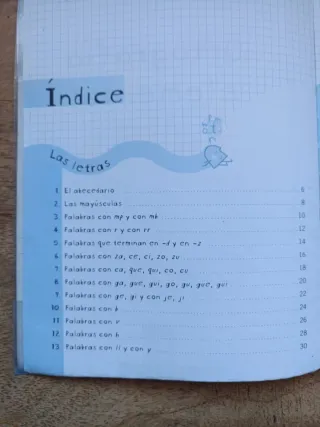 Índice
Las letras
1. El abecedario 6
2. Las mayúsculas 8
3. Palabras con mp y con mb 10
4. Palabras con r y con rr 12
5. Palabras que terminan en -d y en -z 14
6. Palabras con za, ce, ci, zo, zu 16
7. Palabras con ca, que, qui, co, cu 18
8. Palabras con ga, gue, gui, go, gu, güe, güi 20
9. Palabras con ge, gi y con je, ji 22
10. Palabras con b 24
11. Palabras con v 26
12. Palabras con h 28
13. Palabras con ll y con y 30